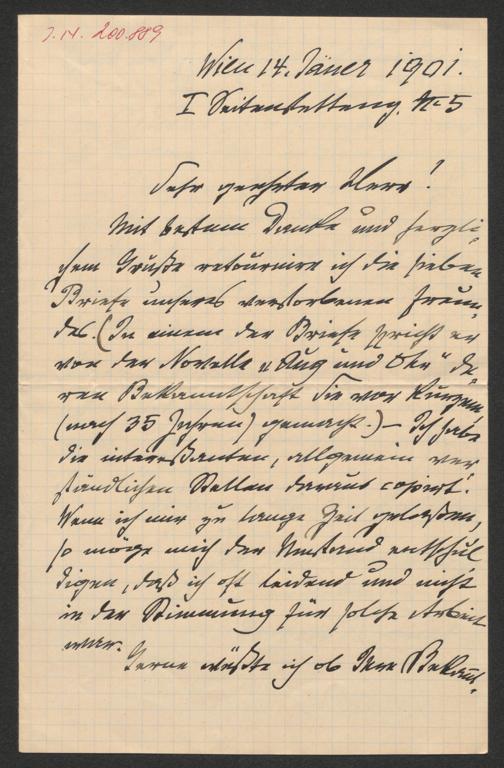 I.N. 200.889
Wien 14. Jäner 1901.
I Seitenstetteng. No 5
Sehr geehrter Herr!
Mit bestem Danke und herzli-
chem Gruße retournire ich die sieben
Briefe unseres verstorbenen Freun-
des. (In einem der Briefe spricht er
von der Novelle „Aug und Ohr“ de-
ren Bekanntschaft Sie vor Kurzem
(nach 35 Jahren) gemacht.) – Ich habe
die interessanten, allgemein ver
ständlichen Stellen daraus copiert.
Wenn ich mir zu lange Zeit gelassen,
so möge mich der Umstand entschul
digen, daß ich oft leidend und nicht
in der Stimmung für solche Arbeit
war.
Gerne wüßte ich ob Ihre Bekannt-